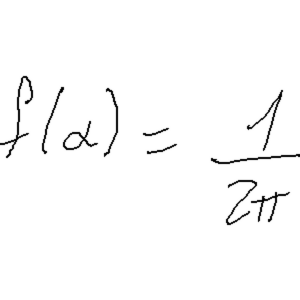 f(α) = 1/2π